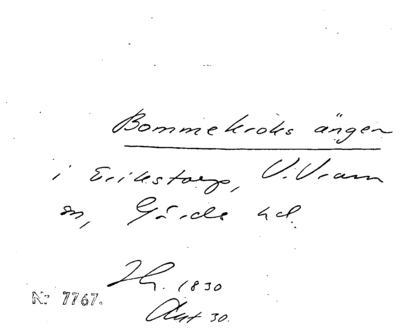 Bommekroks ängen
i Erikstorp, V. Vram
sn, Gärds hd.
1830
Nr 7767.
Akt 30.